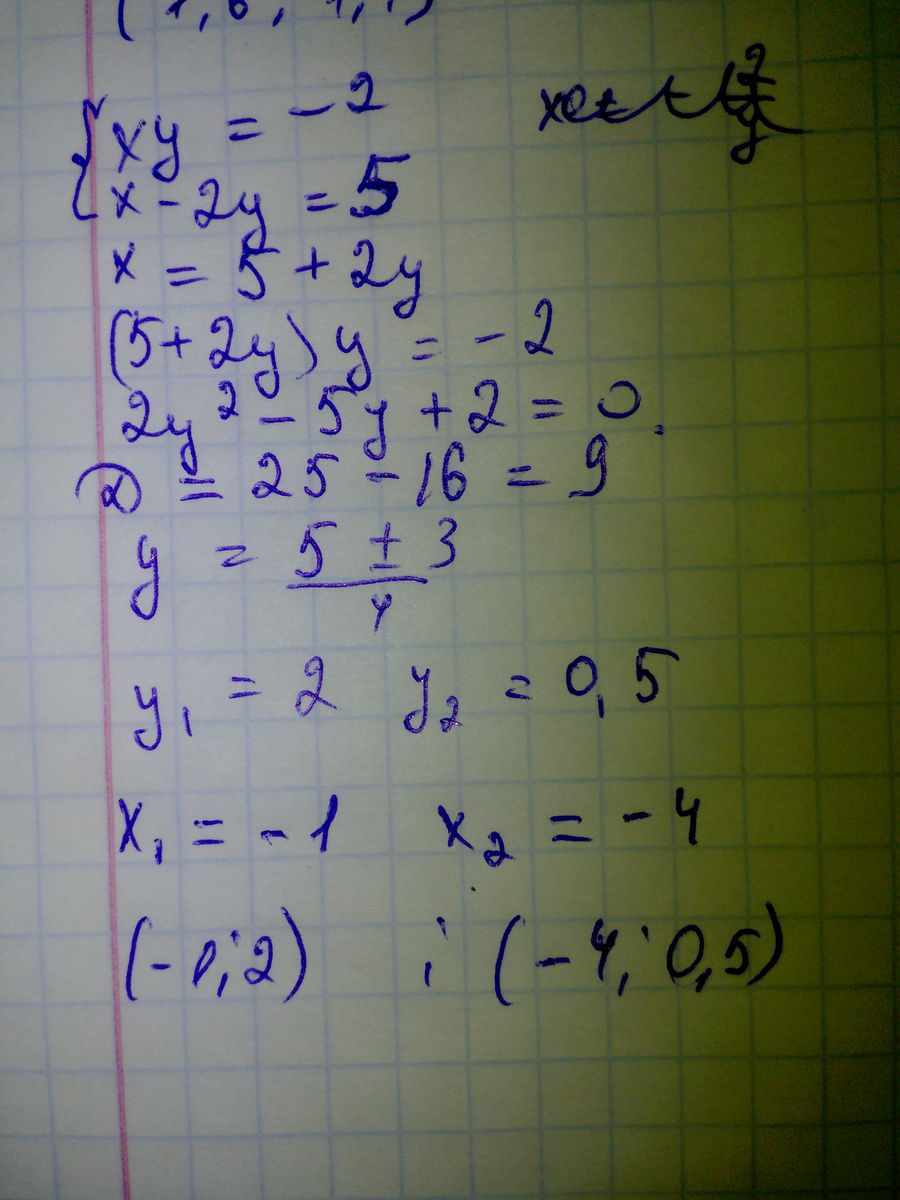 { xy = -2
x - 2y = 5
x = 5 + 2y
(5 + 2y) y = -2
2y² - 5y + 2 = 0
D = 25 - 16 = 9
y = (5 ± 3)/4
y₁ = 2 y₂ = 0,5
x₁ = -1 x₂ = -4
(-1; 2) ; (-4; 0,5)